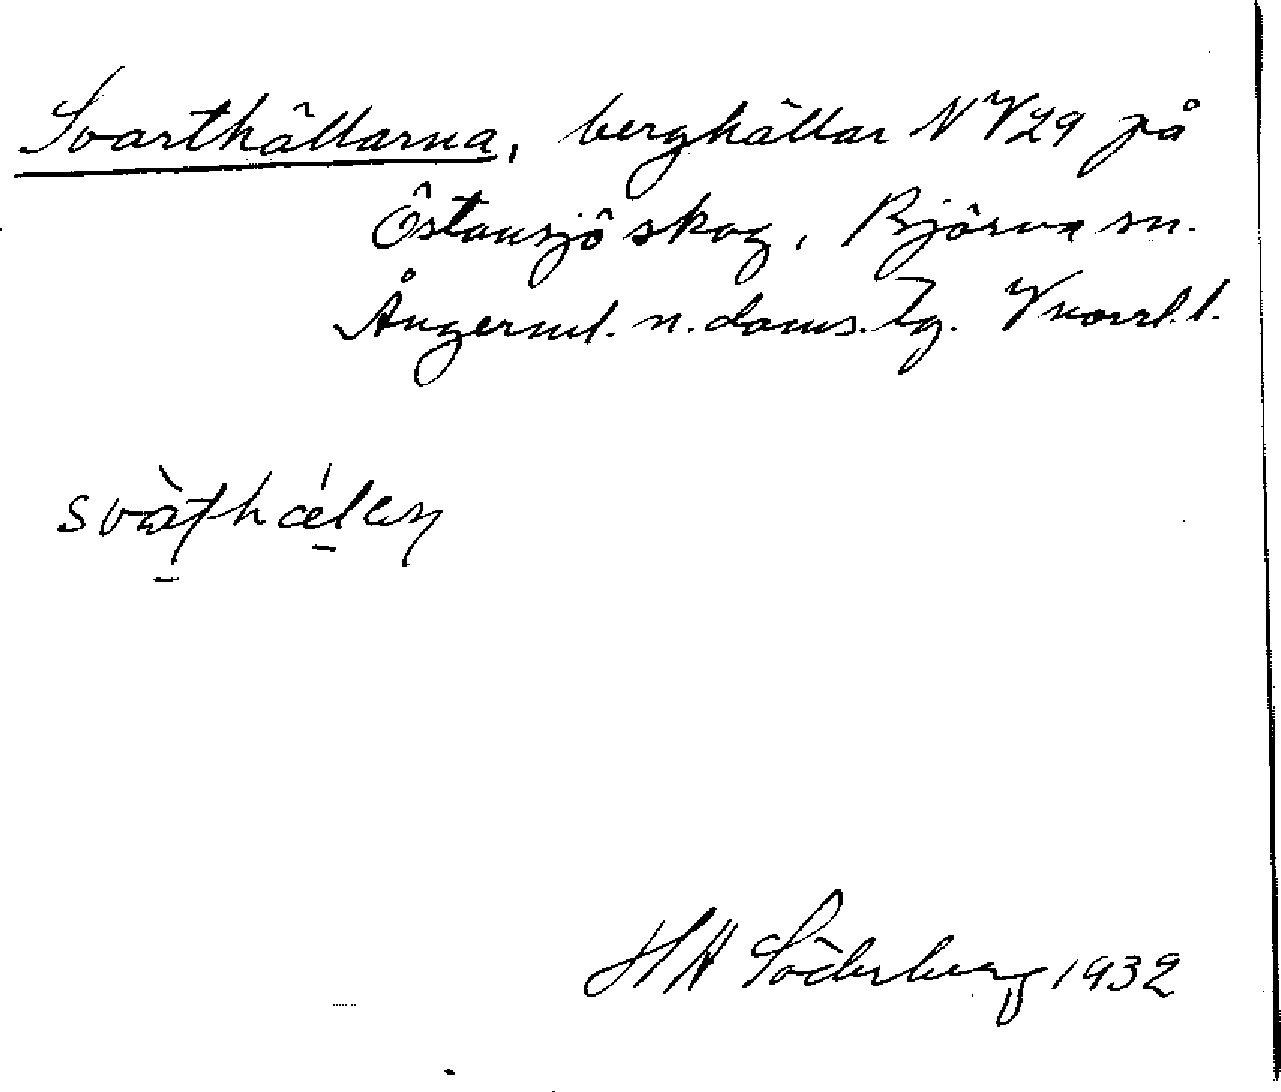 Svarthällarna, berghällar NV29 på
Östansjö skog, Björna sn.
Ångerml. n. doms. tg. Vnorrl. l.
svàthǽlan
HH Söderberg 1932